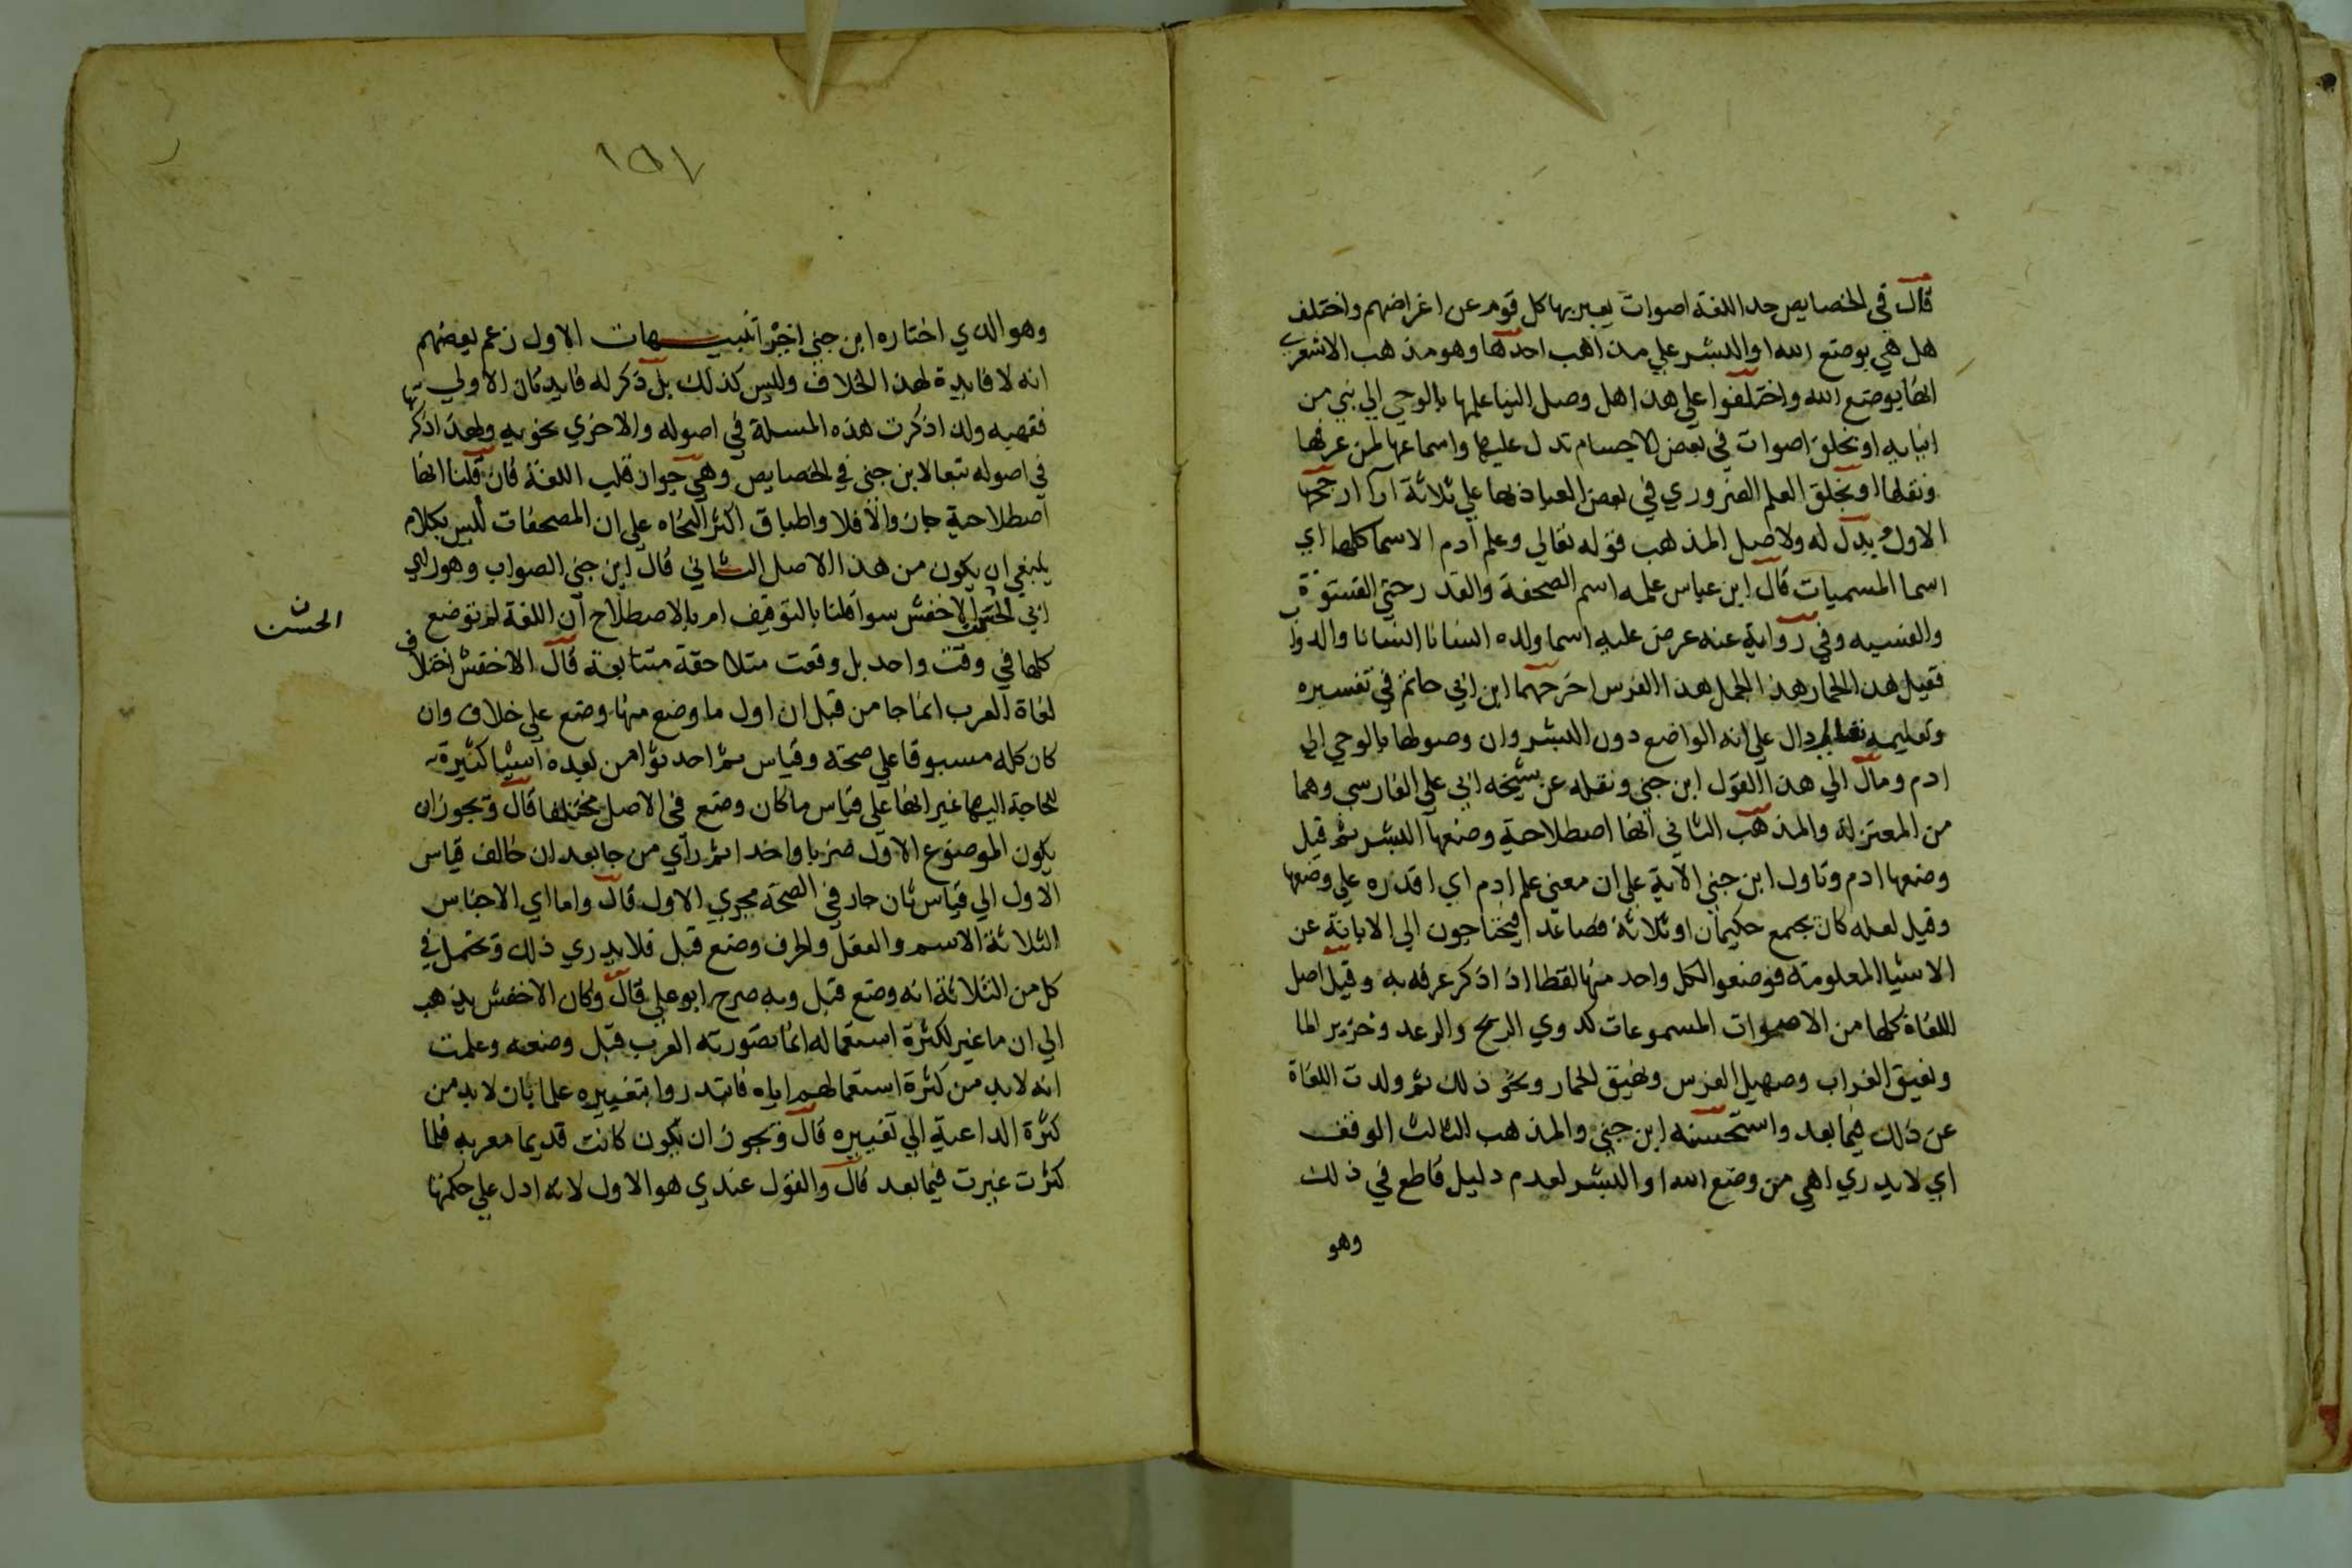 قال في الخصايص حد اللغة اصوات يعبر بها كل قوم عن اغراضهم واختلف
هل هي بوضع الله او البشر علي مذاهب احدها وهو مذهب الاشعري
انها بوضع الله واختلفوا علي هذا هل وصل الينا علمها بالوحي الي نبي من
انبيايه او بخلق اصوات في بعض الاجسام تدل عليها واسماعها لمن عرفها
ونقلها او بخلق العلم الضروري في بعض العباد بها علي ثلاثة ارآ ارجحها
الاول ويدل له ولاصل المذهب قوله تعالي وعلم آدم الاسما كلها اي
اسما المسميات قال ابن عباس علمه اسم الصحفة والقدر حتي الفسوة
والفسيه وفي رواية عنه عرض عليه اسما ولده انسانا انسانا والدواب
فقيل هذا الحمار هذا الجمل هذا الفرس اخرجهما ابن ابي حاتم في تفسيره
وتعليمه تعالي دال علي انه الواضع دون البشر وان وصولها بالوحي الي
ادم ومال الي هذا القول ابن جني ونقله عن شيخه ابي علي الفارسي وهما
من المعتزلة والمذهب الثاني انها اصطلاحية وضعها البشر ثم قيل
وضعها ادم وتاول ابن جني الآية علي ان معني علم ادم اي اقدره علي وضعها
وقيل لعله كان يجمع حكيمان او ثلاثة فصاعدا فيحتاجون الي الابانة عن
الاشيا المعلومة فوضعوا لكل واحد منها لفظا اذا ذكر عرف به وقيل اصل
اللغاة كلها من الاصوات المسموعات كدوي الريح والرعد وخرير الما
ونعيق الغراب وصهيل الفرس ونهيق الحمار ونحو ذلك ثم ولدت اللغاة
عن ذلك فيما بعد واستحسنه ابن جني والمذهب الثالث الوقف
اي لا يدري اهي من وضع الله او البشر لعدم دليل قاطع في ذلك
وهو
١٥٧
وهو الذي اختاره ابن جني اخرا تنبيهات الاول زعم بعضهم
انه لا فايدة لهذا الخلاف وليس كذلك بل ذكر له فايدتان الاولي
فقهيه ولذا ذكرت هذه المسلة في اصوله والاخري نحويه ولهذا ذكرتها
في اصوله تبعا لابن جني في الخصايص وهي جواز قلب اللغة فان قلنا انها
اصطلاحية جاز والا فلا واطباق اكثر النحاه علي ان المصحفات ليس بكلام
ينبغي ان يكون من هذا الاصل الثاني قال ابن جني الصواب وهو راي
ابي الحسن الاخفش سوا قلنا بالتوقيف ام بالاصطلاح ان اللغة لم توضع
الحسن ن
كلها في وقت واحد بل وقعت متلاحقة متتابعة قال الاخفش اختلاف
لغاة العرب انما جا من قبل ان اول ما وضع منها وضع علي خلاف وان
كان كله مسبوقا علي صحة وقياس ثم احدثوا من بعده اشيا كثيرة
للحاجة اليها غير انها علي قياس ما كان وضع في الاصل مختلفا قال ويجوز ان
يكون الموضوع الاول ضربا واحدا ثم راي من جا بعد ان خالف قياس
الاول الي قياس ثان جار في الصحة مجري الاول قال واما اي الاجناس
الثلاثة الاسم والفعل والحرف وضع قبل فلا يدري ذلك ويحتمل في
كل من الثلاثة انه وضع قبل وبه صرح ابو علي قال وكان الاخفش يذهب
الي ان ما غير لكثرة استعماله انما تصورته العرب قبل وضعه وعلمت
انه لا بد من كثرة استعمالهم اياه فابتدروا بتغييره علما بان لا بد من
كثرة الداعية الي تغييره قال ويجوز ان تكون كانت قديما معربه فلما
كثرت غيرت فيما بعد قال والقول عندي هو الاول لانه ادل علي حكمتها